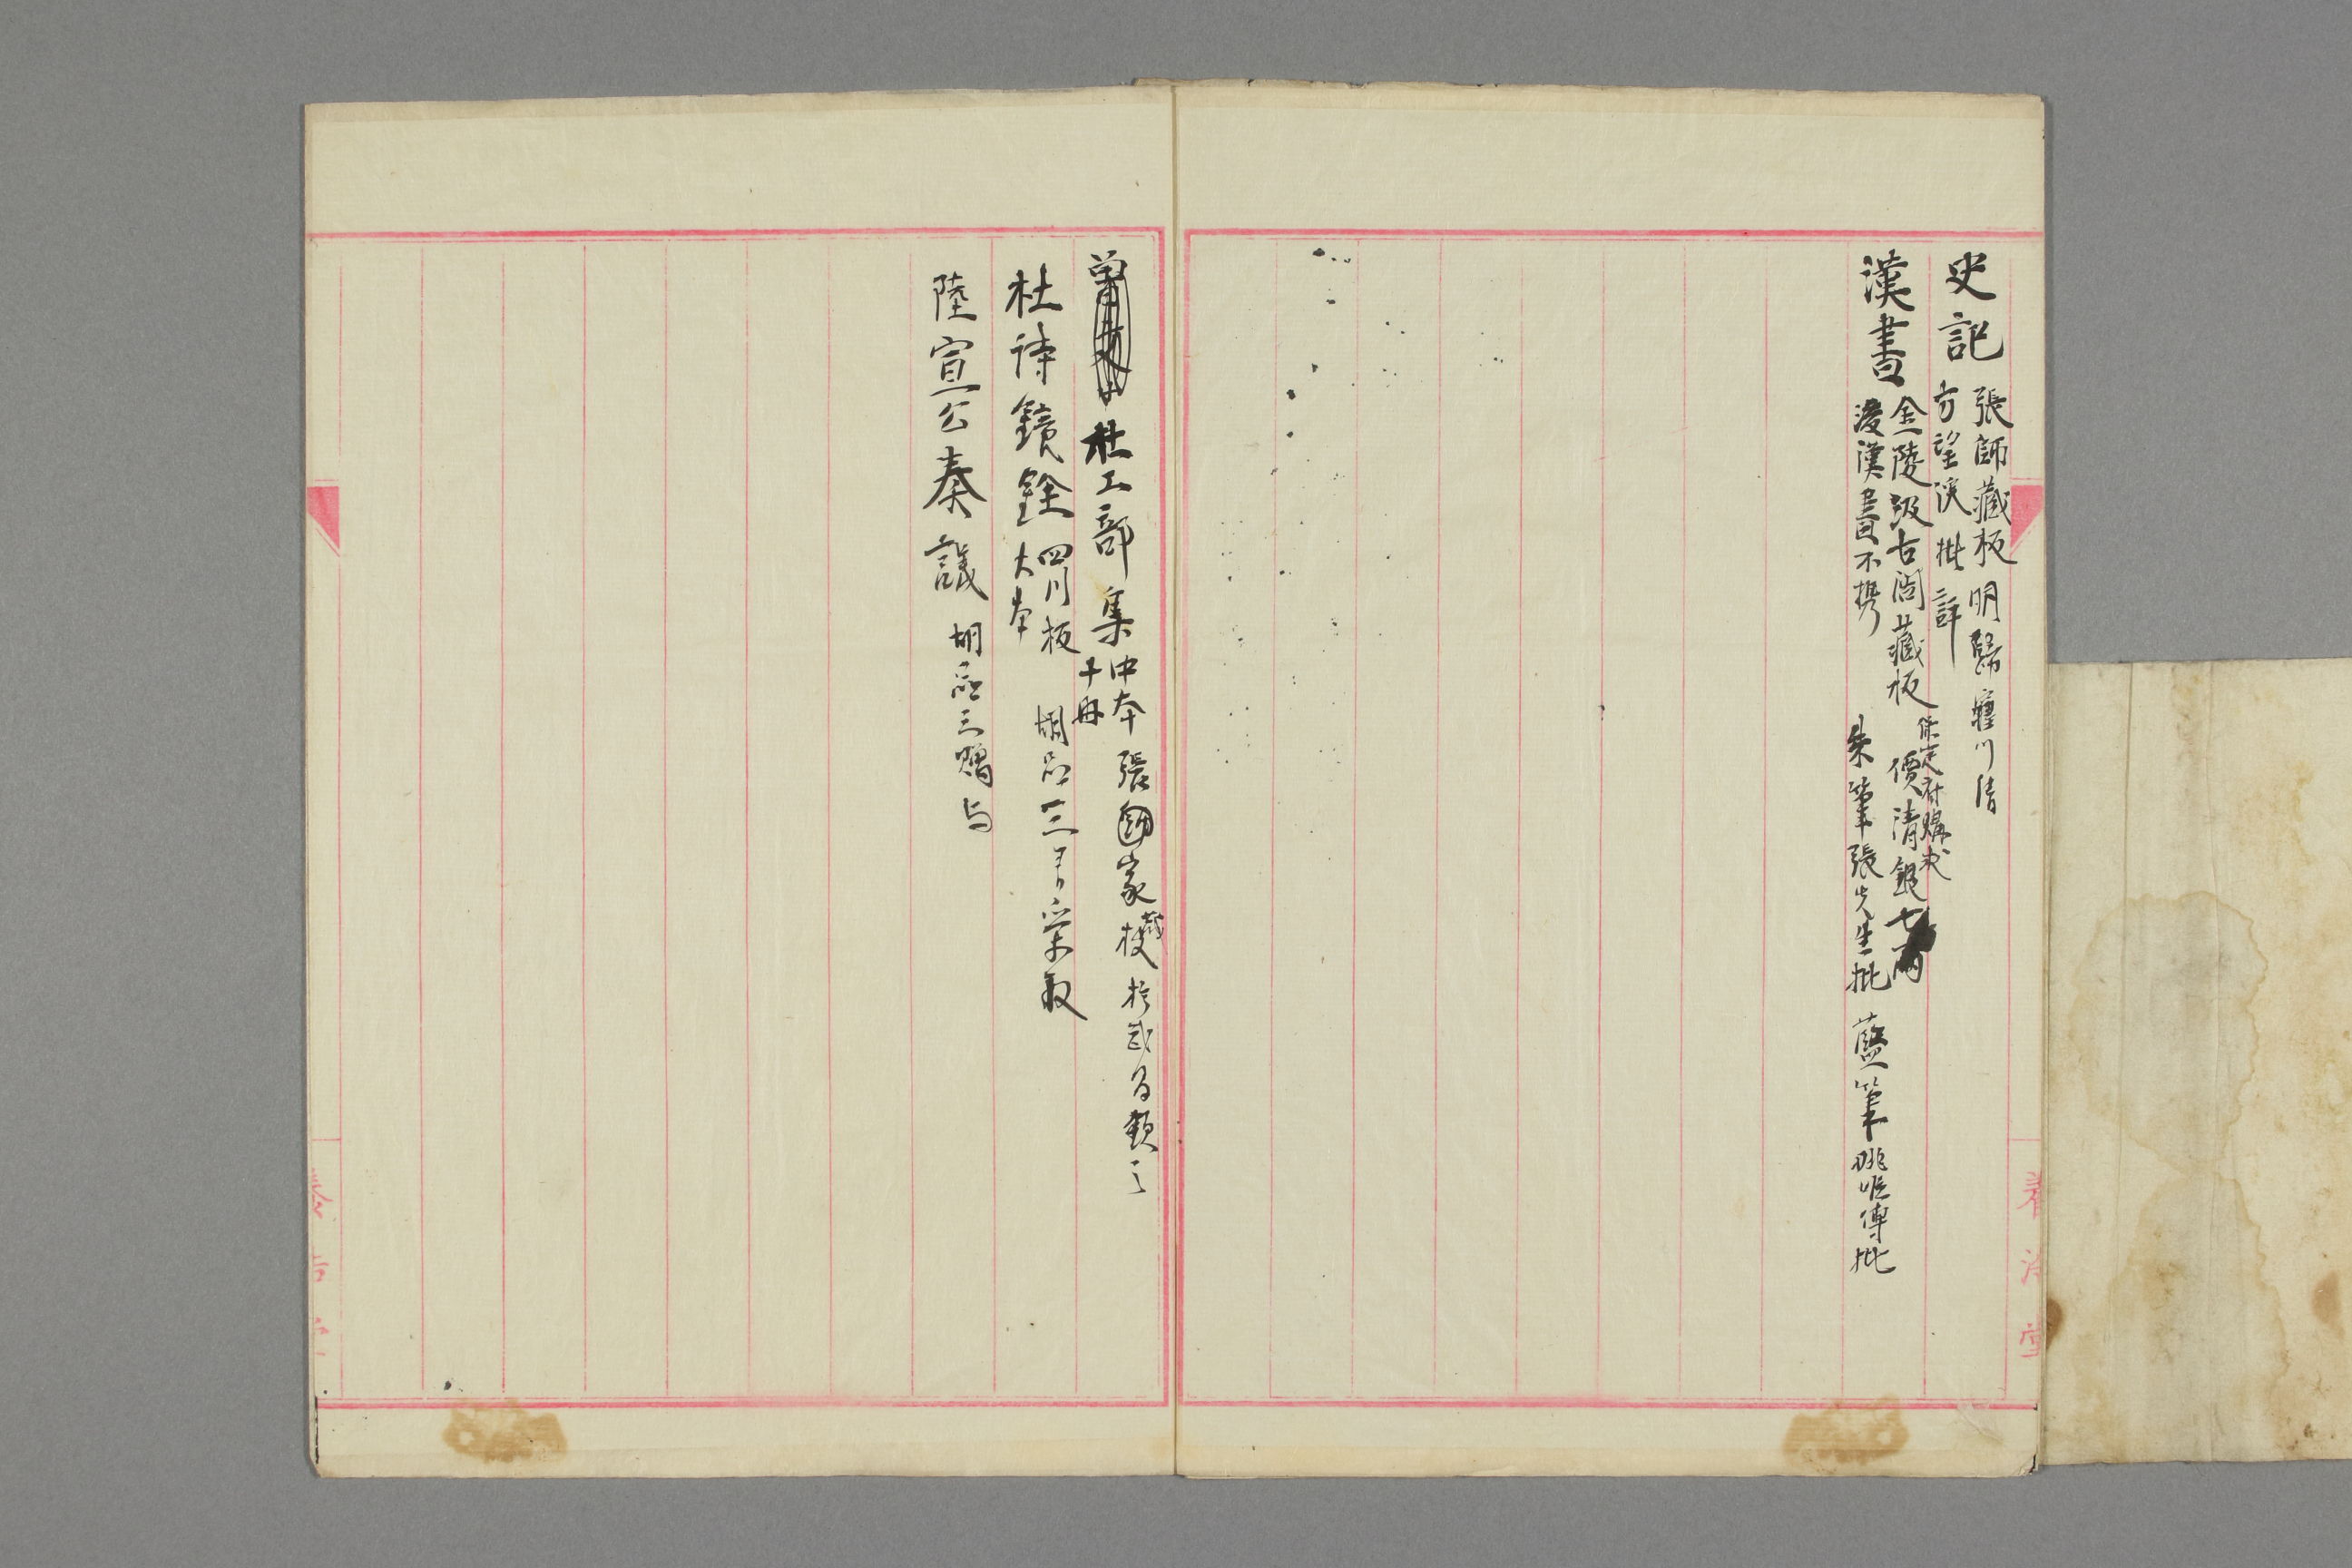 史記 張師藏板 明歸震川清
方望溪批評
漢書 金陵汲古閣藏板 保定府購求 價清銀七兩
後漢書不携 朱筆張先生批 藍筆姚惟傳批
杜工部集 中本 十冊 張國家藏板 於武昌類之
杜詩鏡銓 四川板 大本
陸宣公奏議 胡品三贈与
養浩堂